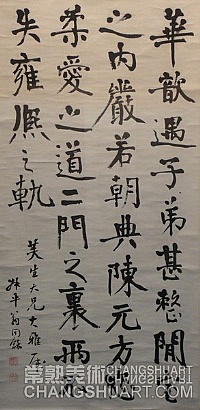 華歆遇子弟甚整閒室
之內嚴若朝典陳元方
柔愛之道二門之裏兩不
失雍熙之軌
芙生大兄大雅屬
叔平翁同龢
常熟美術
CHANGSHUART